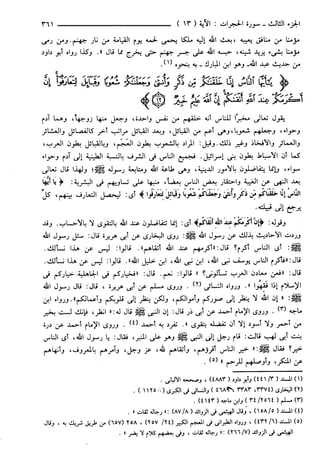 الجزء الثالث - سورة الحجرات : الآية ( ١٣ ) ٣٦١
مؤمنًا من منافق يعيبه ، بعث الله إليه ملكًا يحمي لحمه يوم القيامة من نار جهنم. ومن رمى
مؤمنًا بشيء يريد شينه، حبسه الله على جسر جهنم حتى يخرج مما قال ». وكذا رواه أبو داود
من حديث عبد الله. وهو ابن المبارك - به بنحوه (١).
يَٰٓأَيُّهَا ٱلنَّاسُ إِنَّا خَلَقْنَٰكُم مِّن ذَكَرٍ وَأُنثَىٰ وَجَعَلْنَٰكُمْ شُعُوبًا وَقَبَآئِلَ لِتَعَارَفُوٓا۟ إِنَّ
أَكْرَمَكُمْ عِندَ ٱللَّهِ أَتْقَىٰكُمْ إِنَّ ٱللَّهَ عَلِيمٌ خَبِيرٌ ﴿١٣﴾
يقول تعالى مخبرًا للناس أنه خلقهم من نفس واحدة، وجعل منها زوجها، وهما آدم
وحواء، وجعلهم شعوبا، وهي أعم من القبائل ، وبعد القبائل مراتب أخر كالفصائل والعشائر
والعمائر والأفخاذ وغير ذلك. وقيل: المراد بالشعوب بطون العَجَم، وبالقبائل بطون العرب،
كما أن الأسباط بطون بني إسرائيل. فجميع الناس في الشرف بالنسبة الطينية إلى آدم وحواء
سواء، وإنما يتفاضلون بالأمور الدينية، وهي طاعة الله ومتابعة رسوله ﷺ؛ ولهذا قال تعالى
بعد النهي عن الغيبة واحتقار بعض الناس بعضًا، منبها على تساويهم في البشرية: ﴿ يا أيها
الناس إنا خلقناكم من ذكر وأنثى وجعلناكم شعوبا وقبائل لتعارفوا ﴾ أي: ليحصل التعارف بينهم، كلٌّ
يرجع إلى قبيلته.
وقوله: ﴿ إن أكرمكم عند الله أتقاكم﴾ أي: إنما تتفاضلون عند الله بالتقوى لا بالأحساب. وقد
وردت الأحاديث بذلك عن رسول الله ﷺ: روى البخاري عن أبي هريرة قال: سئل رسول الله
ﷺ: أي الناس أكرم؟ قال: «أكرمهم عند الله أتقاهم». قالوا: ليس عن هذا نسألك.
قال: «فأكرم الناس يوسف نبي الله، ابن نبي الله، ابن خليل الله». قالوا: ليس عن هذا نسألك.
قال: «فعن معادن العرب تسألوني؟ » قالوا: نعم. قال: «فخياركم في الجاهلية خياركم في
الإسلام إذا فقهوا » . ورواه النسائي (٢) . وروى مسلم عن أبي هريرة ، قال: قال رسول الله
ﷺ: « إن الله لا ينظر إلى صوركم وأموالكم، ولكن ينظر إلى قلوبكم وأعمالكم». ورواه ابن
ماجه (٣). وروى الإمام أحمد عن أبي ذر قال: إن النبي ﷺ قال له: « انظر، فإنك لست بخير
من أحمر ولا أسود إلا أن تفضله بتقوى ». تفرد به أحمد (٤) . وروى الإمام أحمد عن درة
بنت أبي لهب قالت: قام رجل إلى النبي ﷺ وهو على المنبر، فقال: يا رسول الله، أي الناس
خير؟ فقال ﷺ: « خير الناس أقرؤهم، وأتقاهم لله، عز وجل، وآمرهم بالمعروف، وأنهاهم
عن المنكر، وأوصلهم للرحم » (٥) .
(١) المسند (٣/ ٤٤١) وأبو داود (٤٨٨٣) ، وحسنه الألباني .
(٣) مسلم ( ٢٥٦٤/ ٣٤) وابن ماجه ( ٤١٤٣ ) .
(٤) المسند (٥/ ١٥٨) ، وقال الهيثمي في الزوائد (٨/ ٨٧) : «رجاله ثقات » .